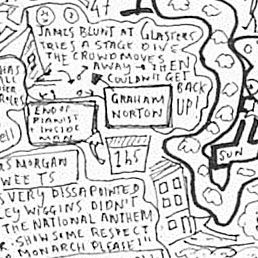 47
JAMES BLUNT AT GLASTERS
TRIES A STAGE DIVE
THE CROWD MOVES
AWAY → THEN
COULDN'T GET
BACK
UP!
HAS
ALL
OVER
GRAHAM
NORTON
END OF
PIANIST
INSIDE
MAN
1h5
SUN
RS MORGAN
WEETS
VERY DISSAPOINTED
EY WIGGINS DIDN'T
THE NATIONAL ANTHEM
R. SHOW SOME RESPECT
MONARCH PLEASE!"